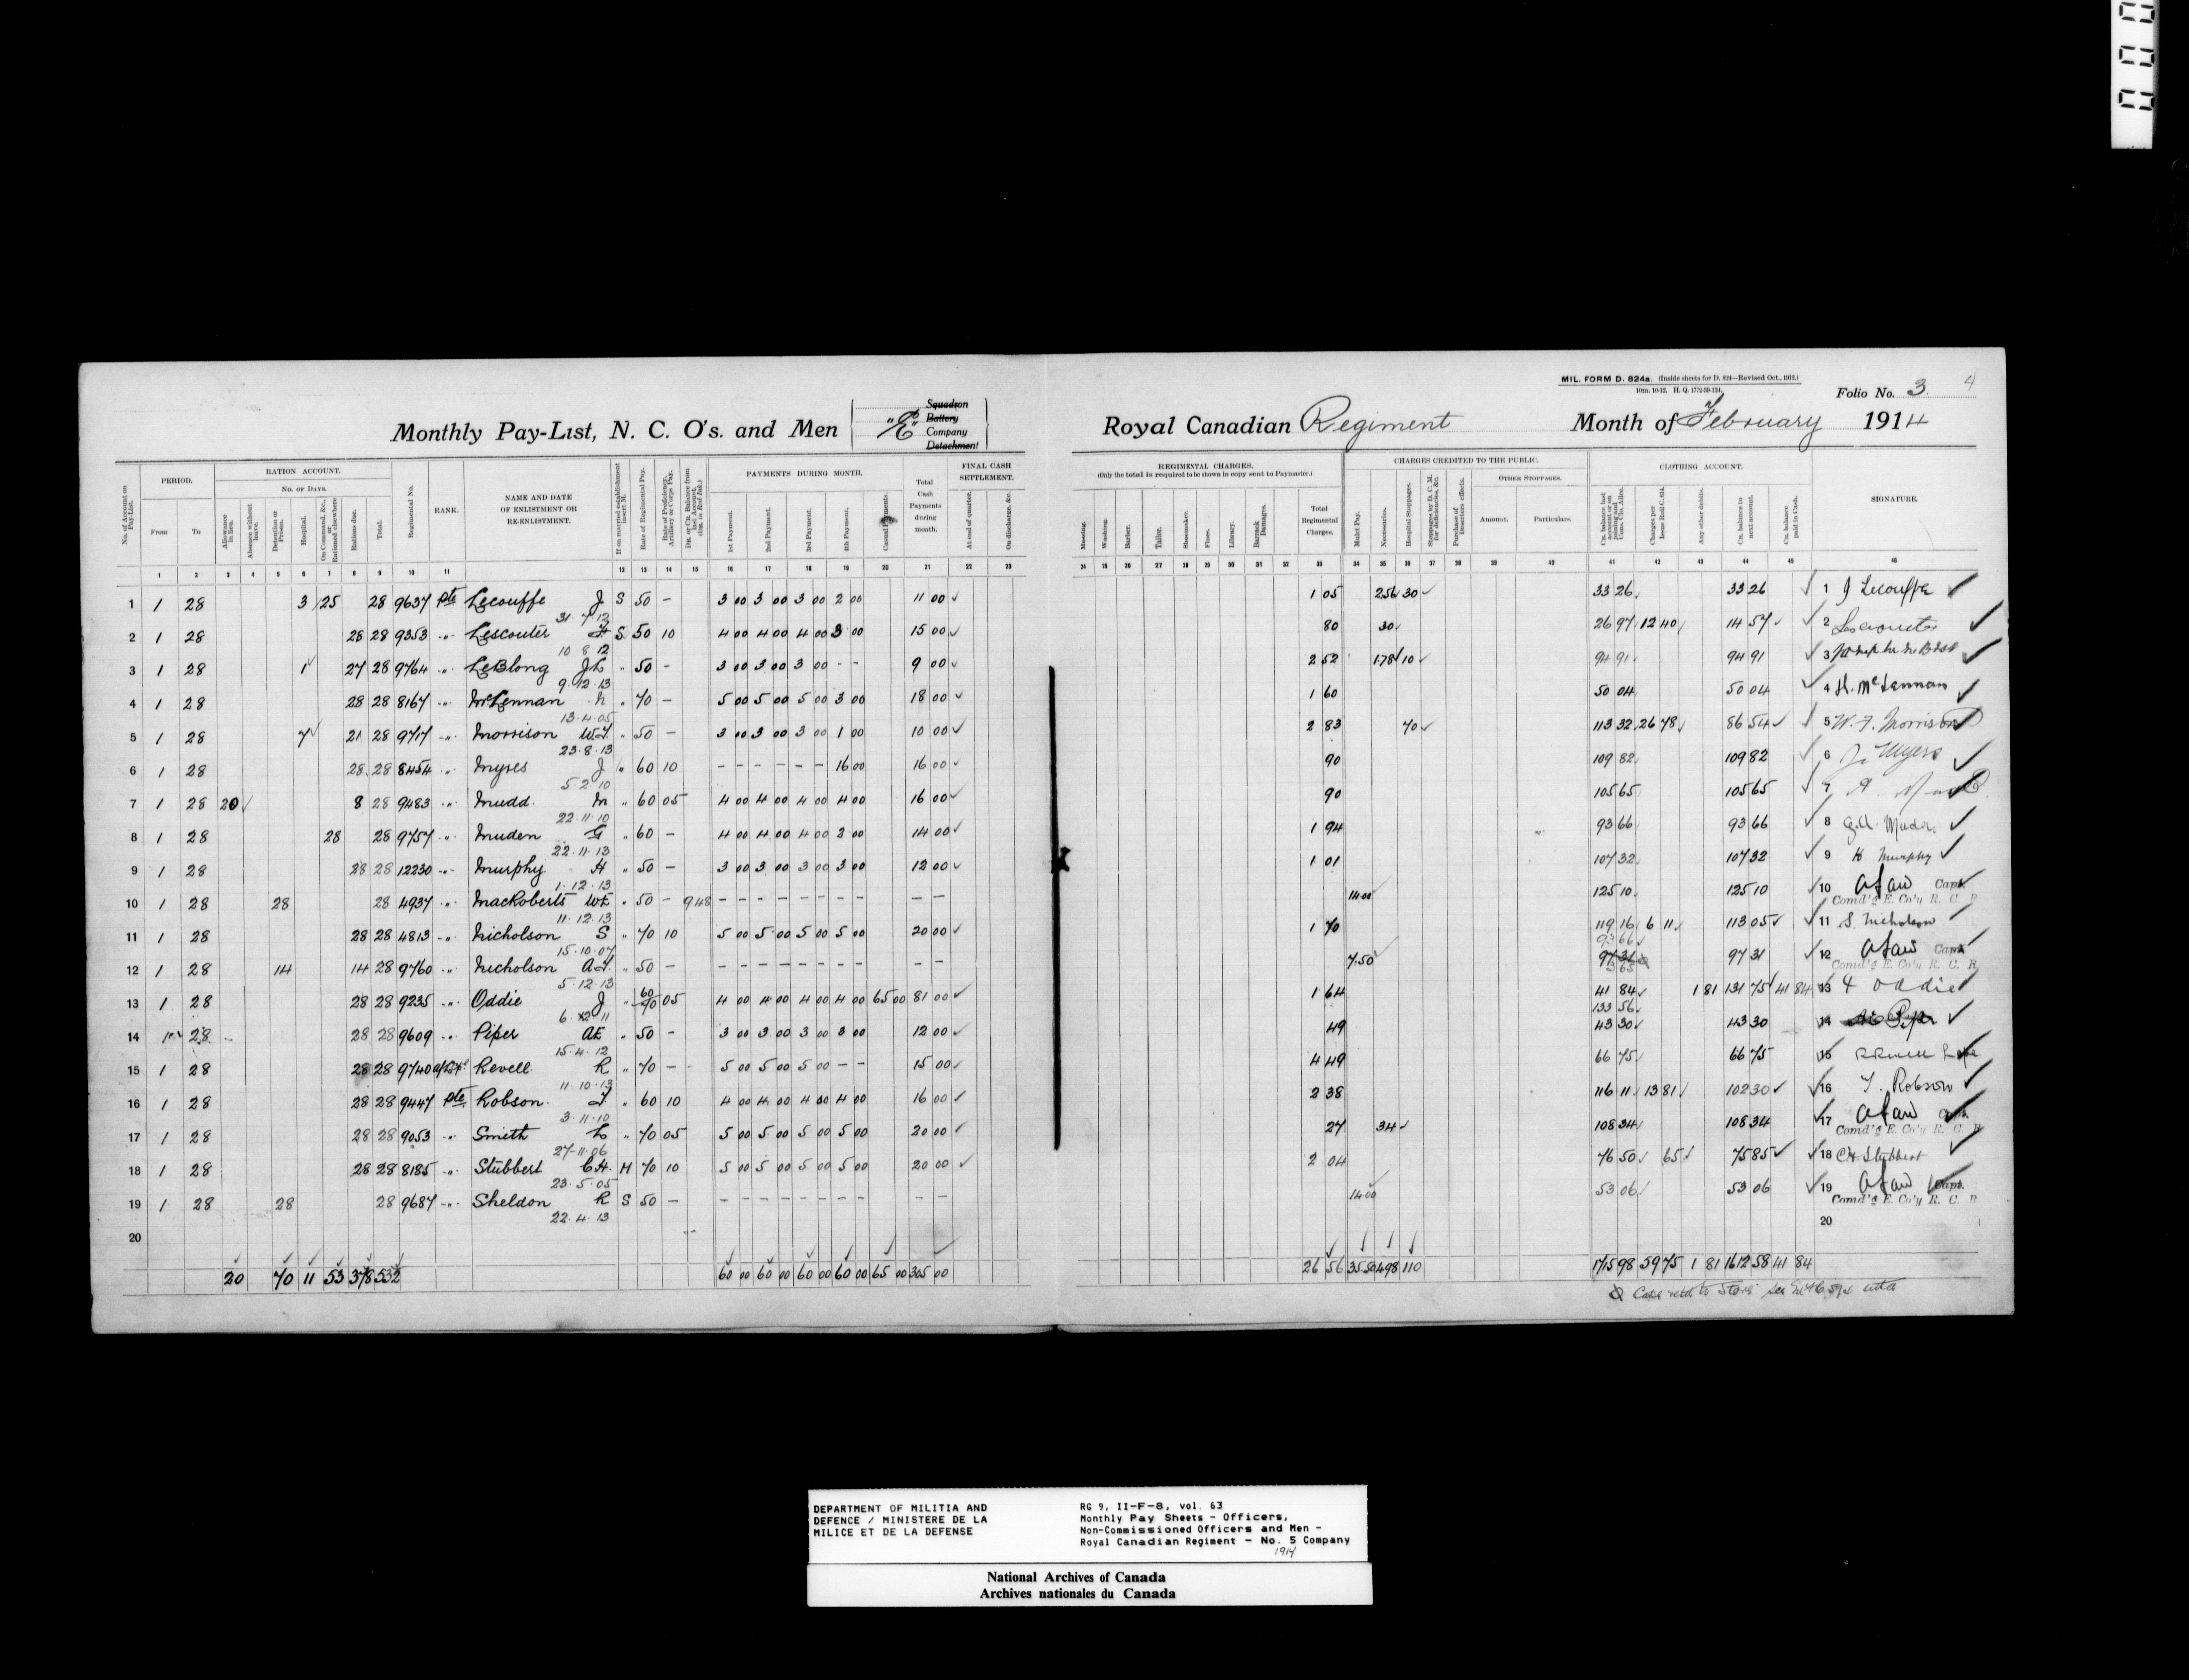 MIL. FORM D. 824a. (Inside sheets for D. 824—Revised Oct., 1912.)
10m. 10-12. H. Q. 1772-39-134.
Folio No. 3 4
Monthly Pay-List, N. C. O's. and Men "E" Squadron Battery Company Detachment Royal Canadian Regiment Month of February 1914
No. of Account on Pay-List. PERIOD. RATION ACCOUNT. PAYMENTS DURING MONTH. FINAL CASH SETTLEMENT. REGIMENTAL CHARGES. CHARGES CREDITED TO THE PUBLIC. CLOTHING ACCOUNT. SIGNATURE.
(Only the total is required to be shown in copy sent to Paymaster.)
No. of Days. OTHER STOPPAGES.
From To Allowance in lieu. Absence without leave. Detention or Prison. Hospital. On Command, &c., or Rationed elsewhere Rations due. Total. Regimental No. RANK. NAME AND DATE OF ENLISTMENT OR RE-ENLISTMENT. If on married establishment insert M. Rate of Regimental Pay. Rate of Proficiency, Artillery or Corps Pay. Dr. or Cr. Balance from last Account. (Dr. in Red Ink.) 1st Payment. 2nd Payment. 3rd Payment. 4th Payment. Casual Payments. Total Cash Payments during month. At end of quarter. On discharge, &c.
Messing. Washing. Barber. Tailor. Shoemaker. Fines. Library. Barrack Damages. Total Regimental Charges. Mulct Pay. Necessaries. Hospital Stoppages. Stoppages by D. C. M. for deficiencies, &c. Purchase of Deserters effects. Amount. Particulars. Charges per Issue Roll C. 614. Any other debits. Cr. balance to next account. Cr. balance paid in Cash.
1 2 3 4 5 6 7 8 9 10 11 12 13 14 15 16 17 18 19 20 21 22 23 24 25 26 27 28 29 30 31 32 33 34 35 36 37 38 39 40 41 42 43 44 45 46
1 1 28 3 25 28 9637 Pte Lecouffe J S 50 – 3 00 3 00 3 00 2 00 11 00 1 05 2 56 30 33 26 33 26 1 J Lecouffe
31 7 12
2 1 28 28 28 9353 " Lescouter S 50 10 4 00 4 00 4 00 3 00 15 00 80 30 26 97 12 40 14 57 2
10 8 12
3 1 28 1 27 28 9764 " LeBlong J L " 50 – 3 00 3 00 3 00 – – 9 00 2 52 1 78 10 94 91 94 91 3
9.12.13
4 1 28 28 28 8167 " McLennan h " 70 – 5 00 5 00 5 00 3 00 18 00 1 60 50 04 50 04 4 H. McLennan
13.4.05
5 1 28 7 21 28 9717 " Morrison W.F. " 50 – 3 00 3 00 3 00 1 00 10 00 2 83 70 113 32 26 78 86 54 5 W. F. Morrison
23.8.13
6 1 28 28 28 8454 " Myres J " 60 10 – – – – – – 16 00 16 00 90 109 82 109 82 6 J. Myers
5.2.10
7 1 28 20 8 28 9483 " Mudd. M " 60 05 4 00 4 00 4 00 4 00 16 00 90 105 65 105 65 7
22.11.10
8 1 28 28 28 9757 " Muden G " 60 – 4 00 4 00 4 00 2 00 14 00 1 94 93 66 93 66 8 G.A. Muden
22.11.13
9 1 28 28 28 12230 " Murphy H " 50 – 3 00 3 00 3 00 3 00 12 00 1 01 107 32 107 32 9 H Murphy
1.12.13
10 1 28 28 28 4937 " MacRoberts WE " 50 – 9 48 – – – – – – – – – – 14 00 125 10 125 10 10 Capt. Comd'g E. Co'y R. C. R
11.12.13
11 1 28 28 28 4813 " Nicholson S " 70 10 5 00 5 00 5 00 5 00 20 00 1 70 119 16 6 11 113 05 11 S. Nicholson
15.10.07 93 66
12 1 28 14 14 28 9760 " Nicholson A.F. " 50 – – – – – – – – – – – 7.50 97 31 97 31 12 Capt. Comd'g E. Co'y R. C. R
5.12.13 3 65
13 1 28 28 28 9235 " Oddie J " 60 70 05 4 00 4 00 4 00 4 00 65 00 81 00 1 64 41 84 1 81 131 75 41 84 13 Oddie
6.12 11 133 56
14 1 28 28 28 9609 " Piper AE " 50 – 3 00 3 00 3 00 3 00 12 00 49 43 30 43 30 14
15.4.12
15 1 28 28 28 9740 Revell R " 70 – 5 00 5 00 5 00 – – 15 00 4 49 66 75 66 75 15
11.10.13
16 1 28 28 28 9447 Pte Robson. F " 60 10 4 00 4 00 4 00 4 00 16 00 2 38 116 11 13 81 102 30 16 Robson
3.11.10
17 1 28 28 28 9053 " Smith L " 70 05 5 00 5 00 5 00 5 00 20 00 27 34 108 34 108 34 17 Comd'g E. Co'y R. C. R
27-11.06
18 1 28 28 28 8185 " Stubbert C.H. M 70 10 5 00 5 00 5 00 5 00 20 00 2 04 76 50 65 75 85 18 CH Stubbert
23.5.05
19 1 28 28 28 9687 " Sheldon R S 50 – – – – – – – – – – – 14 00 53 06 53 06 19 Capt. Comd'g E. Co'y R. C. R
22.4.13
20 20
20 70 11 53 378 532 60 00 60 00 60 00 60 00 65 00 305 00 26 56 35 50 4 98 1 10 1715 98 59 75 1 81 1612 58 41 84
DEPARTMENT OF MILITIA AND
DEFENCE / MINISTERE DE LA
MILICE ET DE LA DEFENSE
RG 9, II-F-8, vol. 63
Monthly Pay Sheets - Officers,
Non-Commissioned Officers and Men -
Royal Canadian Regiment - No. 5 Company
1914
National Archives of Canada
Archives nationales du Canada